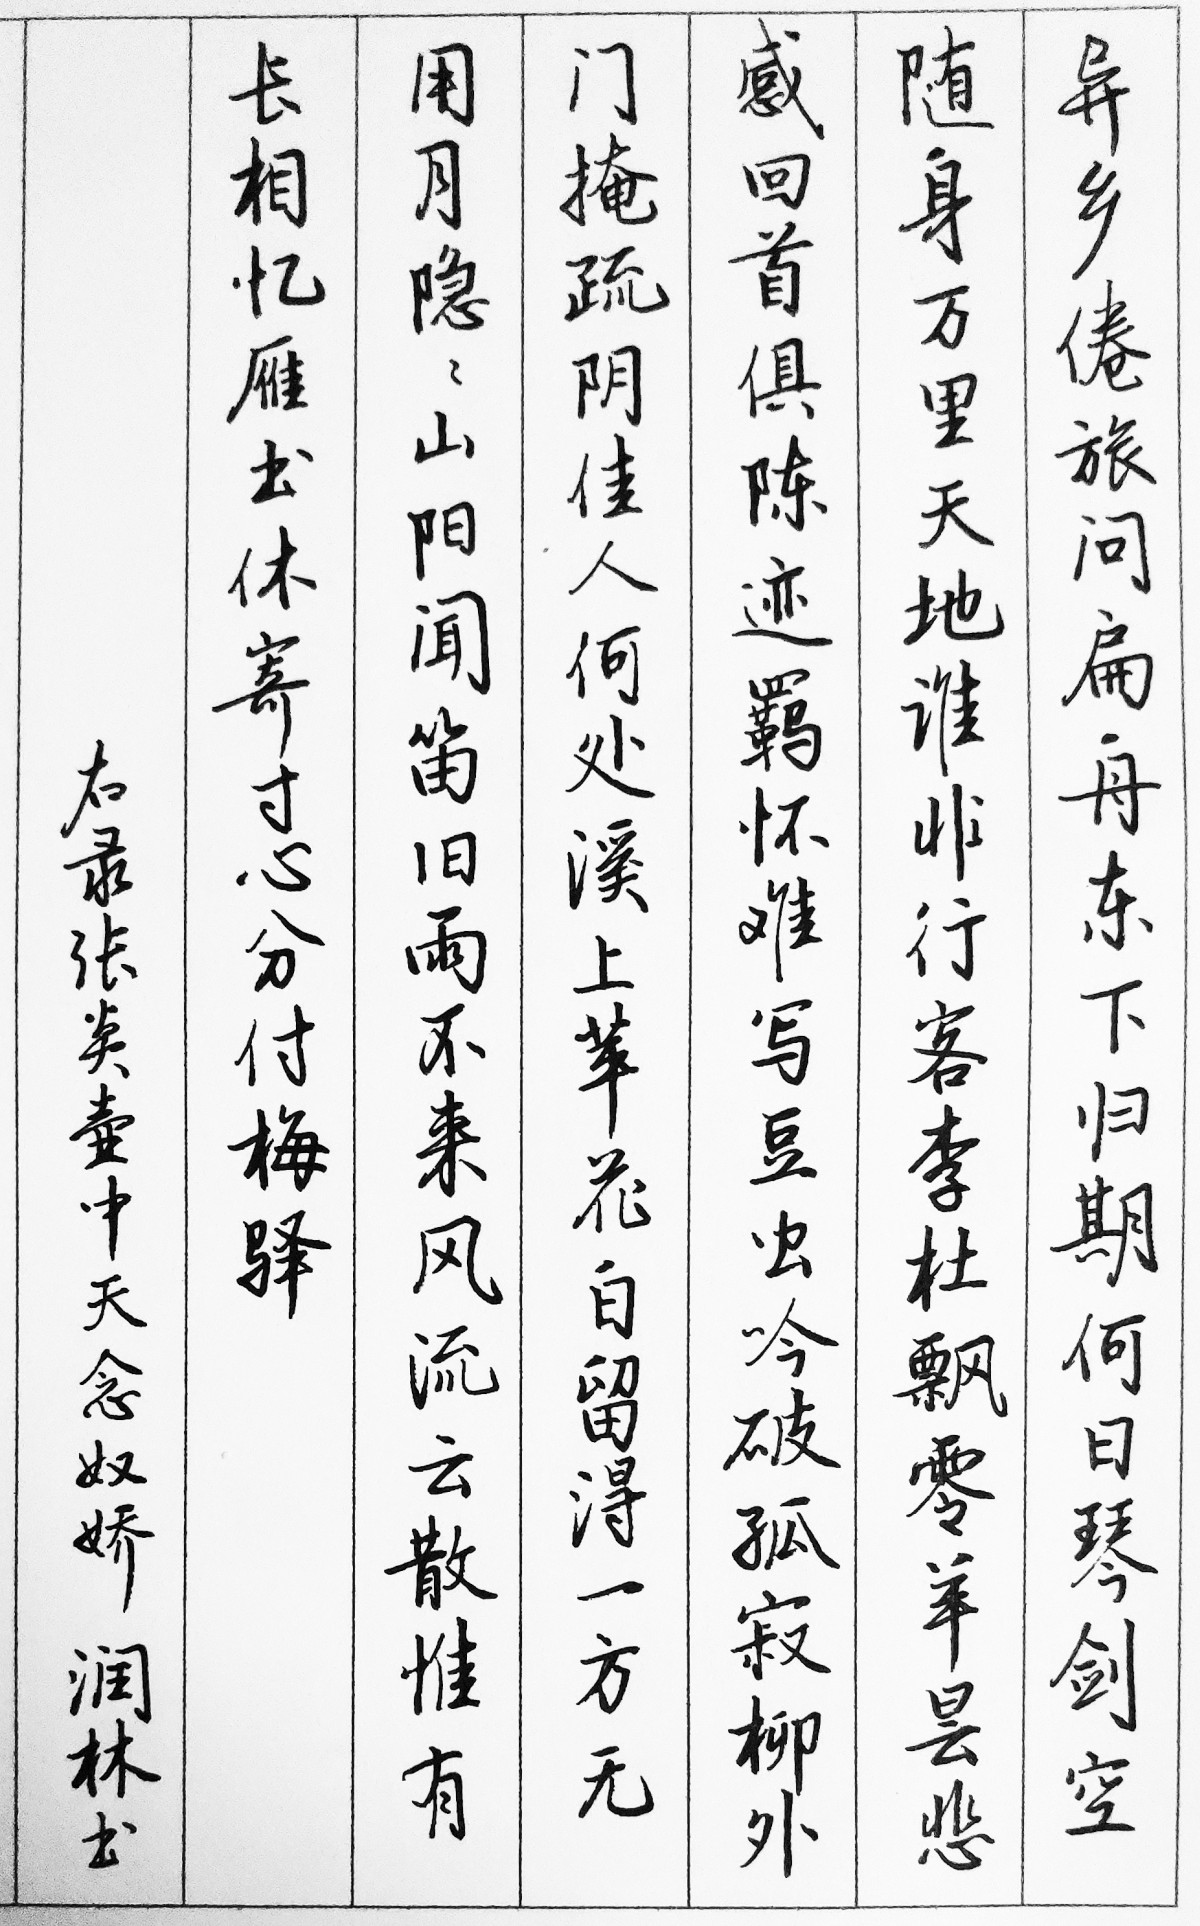 异乡倦旅问扁舟东下归期何日琴剑空
随身万里天地谁非行客李杜飘零羊昙悲
感回首俱陈迹羁怀难写豆虫吟破孤寂柳外
门掩疏阴佳人何处溪上苹花白留得一方无
用月隐〻山阳闻笛旧雨不来风流云散惟有
长相忆雁书休寄寸心分付梅驿
右录张炎壶中天念奴娇 润林书